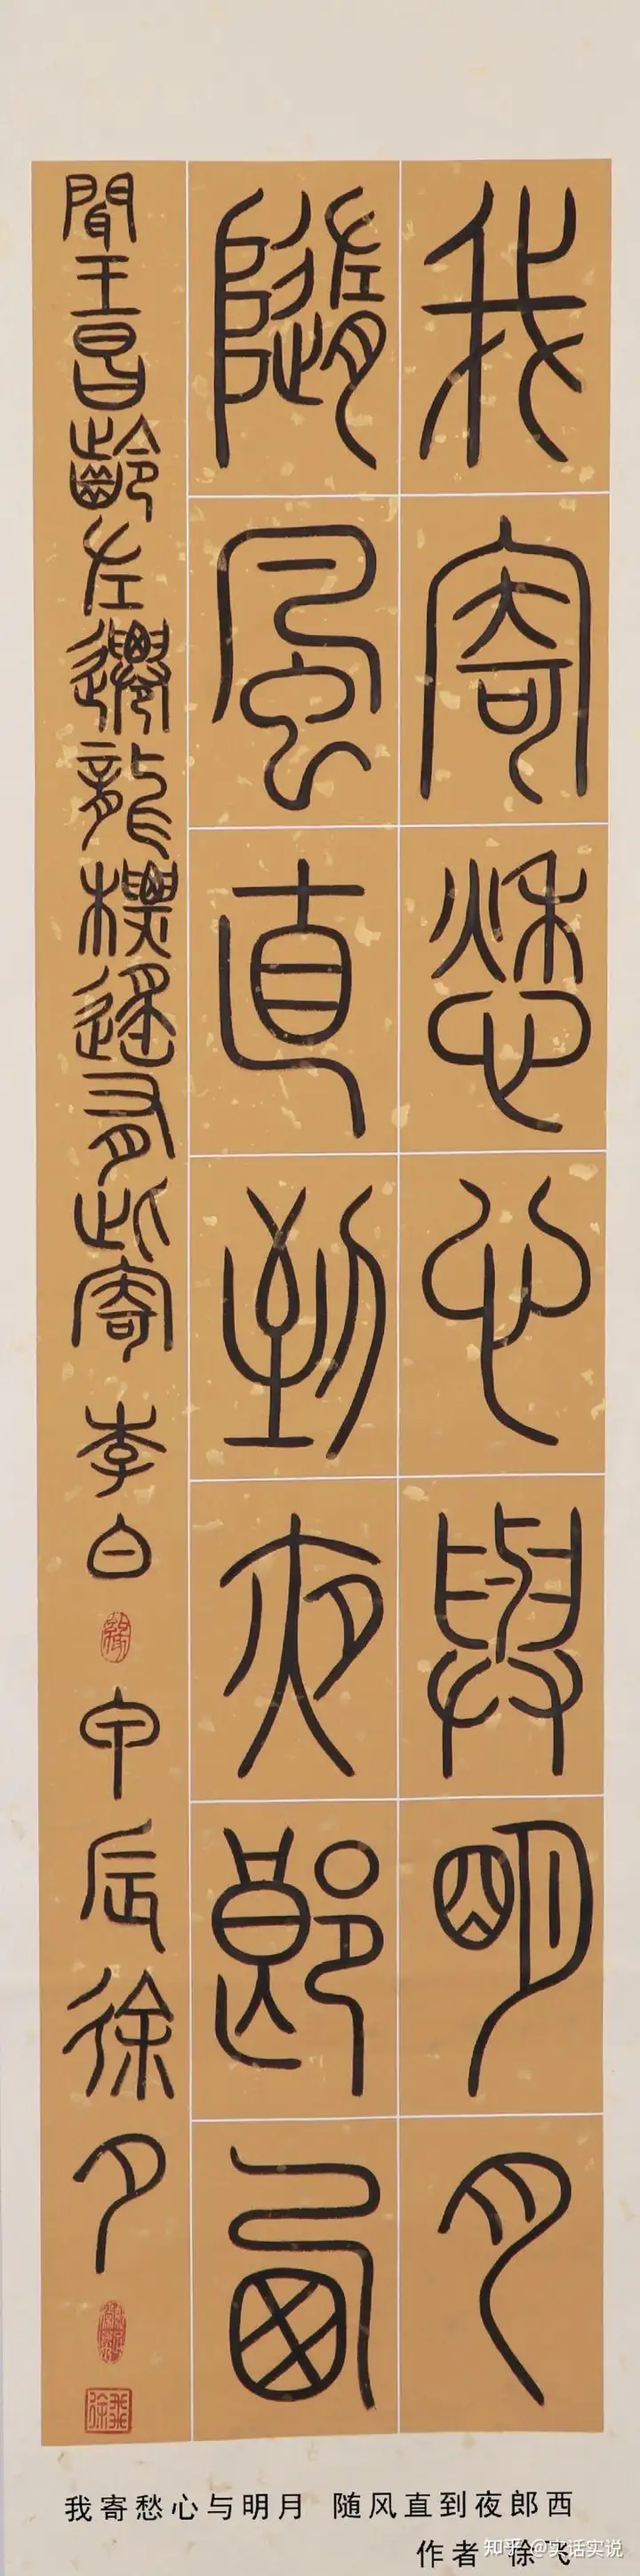 我寄愁心與明月
隨風直到夜郎西
聞王昌齡左遷龍標遙有此寄 李白 甲辰 徐夕
徐飛
我寄愁心与明月 随风直到夜郎西
作者 徐飞
知乎 @实话实说